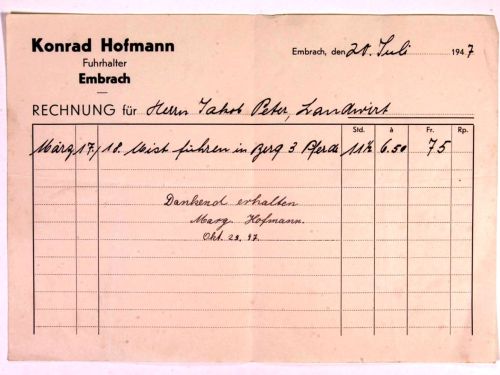 Konrad Hofmann
Fuhrhalter
Embrach
Embrach, den 20. Juli 1947
RECHNUNG für Herrn Jakob Peter, Landwirt
Std. à Fr. Rp.
März 17./18. Mist führen in Berg 3 Pferde 11½ 6.50 75
Dankend erhalten
Marg. Hofmann.
Okt. 23. 47.